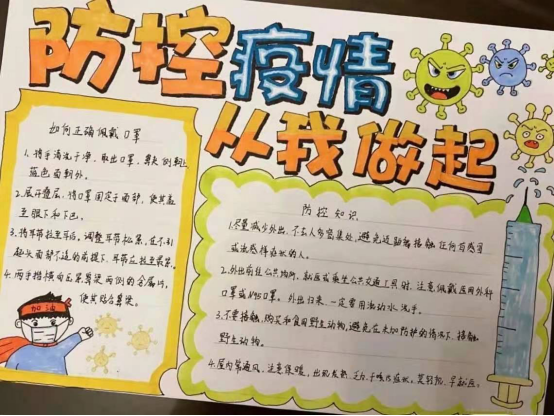 防控疫情
从我做起
如何正确佩戴口罩
1.将手清洗干净,取出口罩,鼻夹侧朝上,
蓝色面朝外。
2.展开叠层,将口罩固定于面部,使其盖
至眼下和下巴。
3.将耳带拉至耳后,调整耳带松紧,在不引
起头面部不适的前提下,耳带应拉至最紧。
4.两手指横向在鼻翼两侧的金属片,
使其贴合鼻梁。
加油
防控知识
1.尽量减少外出,不去人多密集处,避免近距离接触任何有感冒
或流感样症状的人。
2.外出前往公共场所、就医或乘坐公共交通工具时,注意佩戴医用外科
口罩或N95口罩。外出归来,一定要用流动水洗手。
3.不要接触,购买和食用野生动物,避免在未加防护的情况下,接触
野生动物。
4.屋内常通风,注意保暖,出现发热、乏力、干咳的症状,莫轻视,早就医。